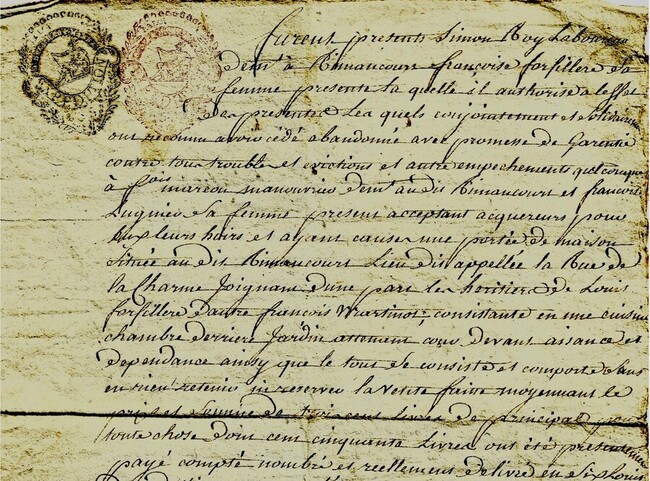 EXPEDITION
furent presents Simon Roy Laboureur
demt à Rimaucourt françoise forfillere sa
femme presente la quelle il authorise a leffet
des presentes Les quels conjointement et solidairement
ont reconnu avoir cédé abandonné avec promesse de Garentie
contre tous troubles et evictions et autre empechements quelconque
à fois marcou manouvrier demt audit Rimaucourt et francoise
sa femme present acceptant acquereurs pour
Eux leurs hoirs et ayant causes une portée de maison
située au dit Rimaucourt Lieu dit appellée la Rue de
la Charme Joignant dune part les heritiers de Louis
forfillere dautre francois consistante en une cuisine
chambre derriere Jardin attenant cour devant aisance et
dependance ainsy que le tout se consiste et comporte sans
en rien retenir ni reserver la vente faitte moyennant le
prix et somme de trois cent livres de principal pour
toute chose dont cent cinquante Livres ont été presentement
payé compté nombré et reellement delivré en six louis